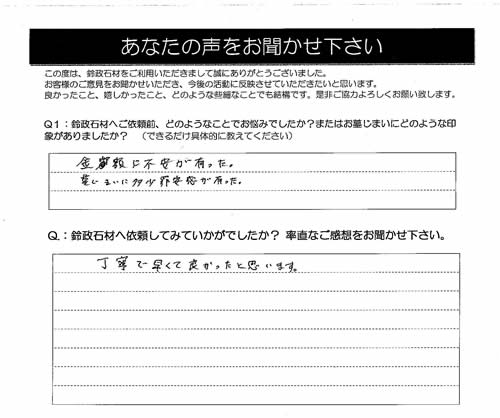 あなたの声をお聞かせ下さい
この度は、鈴政石材をご利用いただきまして誠にありがとうございました。
お客様のご意見をお聞かせいただき、今後の活動に反映させていただきたいと思います。
良かったこと、嬉しかったこと、どのような些細なことでも結構です。是非ご協力よろしくお願い致します。
Q1：鈴政石材へご依頼前、どのようなことでお悩みでしたか？またはお墓じまいにどのような印
象がありましたか？（できるだけ具体的に教えてください）
金額に不安が有った。
墓じまいに多少罪悪感が有った。
Q.：鈴政石材へ依頼してみていかがでしたか？ 率直なご感想をお聞かせ下さい。
丁寧で早くて良かったと思います。